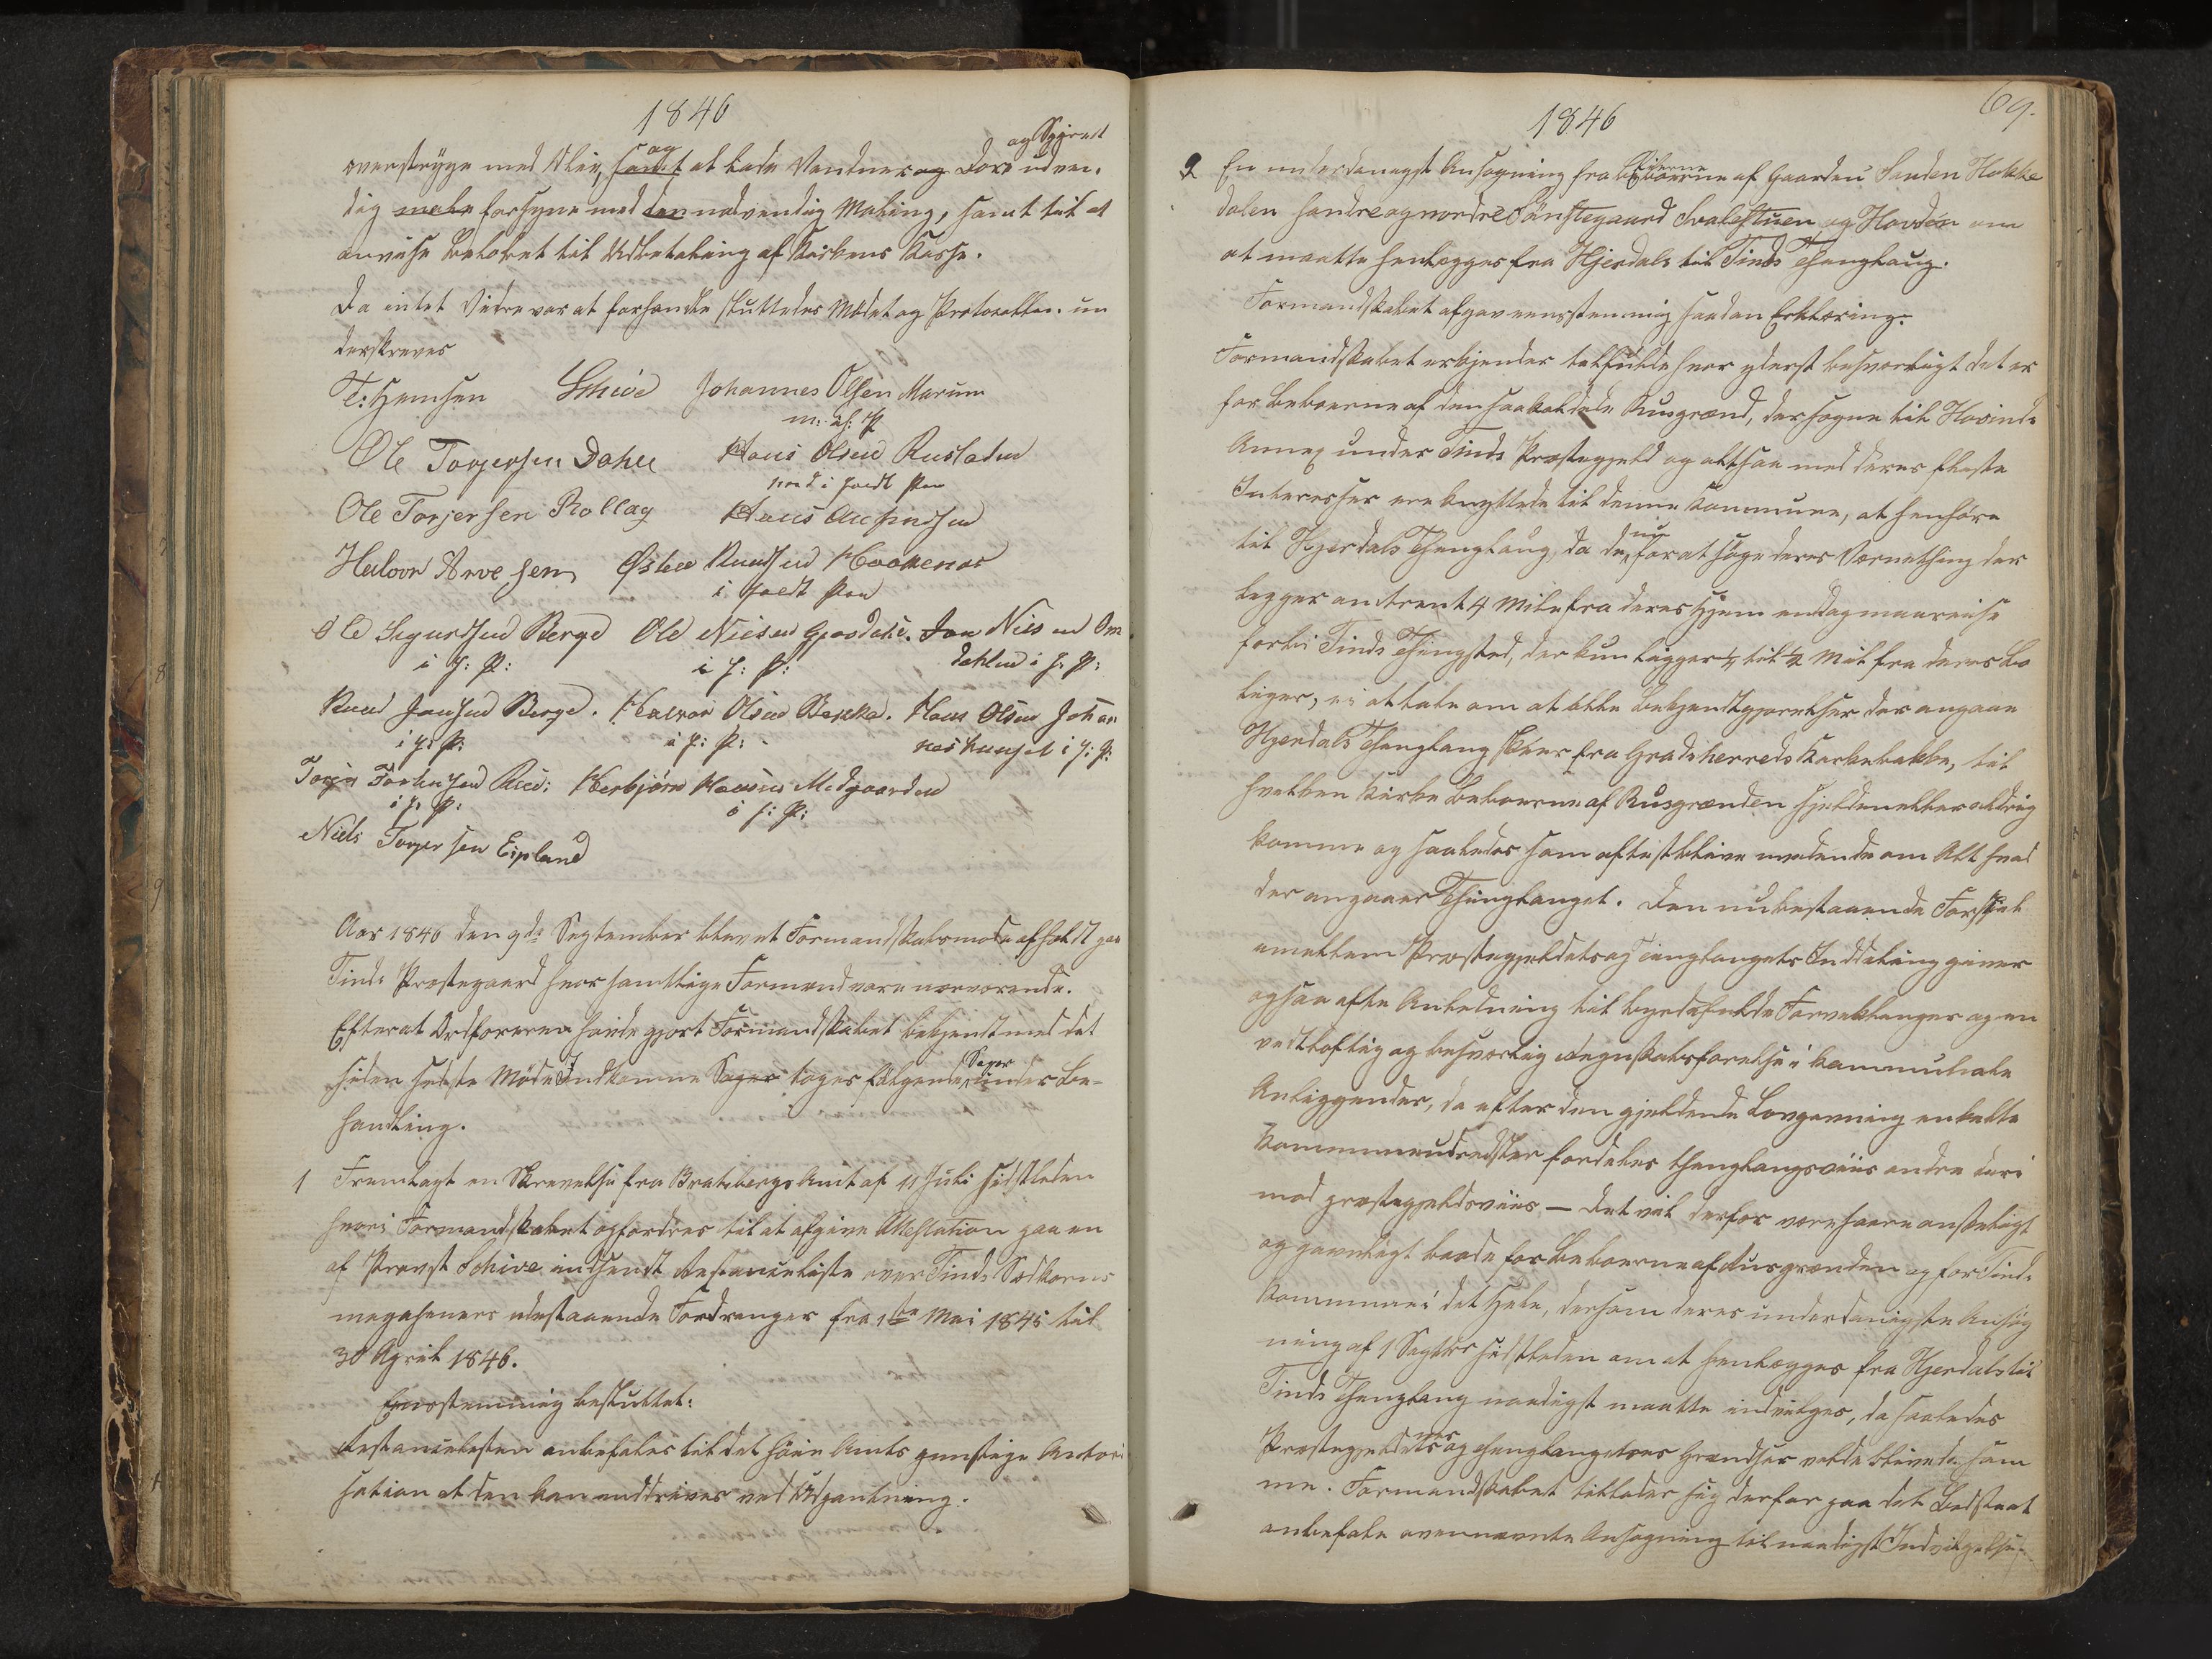 1846
og Spiret
overstryge med Kliv, samt og at lade Vinduer og Dore udven-
dig male forsyne med den nødvendig Maling, samt til at
anvise Beløbet til Udbetaling af Kirkens Kasse.
Da intet Videre var at forhandle sluttedes Mödet og Protocollen un
derskreves
T: Hemsen Schive Johannes Olsen Marum
m: P: P
Ole Torgersen Dahle Hans Olsen Rusladen
med i holdt Pen
Ole Torjersen Rollag Hans
Halvor Arvesen Østen Knudsen Haakenæs
i holdt Pen
Ole Sigurdsen Berge Ole Nielsen Gjosdahl. Jon Nielsen Om
i h: P: i h: P: dahlen i h: P:
Knud Jonsen Berge. Halvor Olsen Bakka. Hans Olsen Johan
i h: P: i h: P: neshuuset i h: P:
Torjer Torkilsen Rue: Herbjørn Hansen Midgaarden
i h: P: i h: P:
Niels Torjersen Eipland
Aar 1846 den 9de September blev et Formandskabsmøde afholdt paa
Tinds Præstegaard hvor samtlige Formænd vare nærværende.
Efterat Ordföreren havde gjort Formandskabet bekjendt med det
siden sidste Möde Indkomne Sager toges fölgende Sager under Be-
handling.
1 Fremlagt en Skrivelse fra Bratsbergs Amt af 11 Juli sidstleden
hvori Formandskabet opfordres til at afgive Attestation paa en
af Provst Schive indsendt Restanceliste over Tinds Sædkorns
magasiners udestaaende Fordringer fra 1ste Mai 1845 til
30 April 1846.
Eensstemmig besluttet:
Restancelisten anbefales til det höie Amts gunstige Autori
sation at den kan inddrives ved Udpantning.
1846
69.
2 En underdanigst Ansøgning fra Beboerne Eierne af Gaarden Sanden Hakke
dalen söndre og nordre Tönstegaard Svalestuen og Hovden om
at maatte henlægges fra Hjerdals til Tinds Thinglaug.
Formandskabet afgav eensstemmig saadan Erklæring:
Formandskabet erkjender tilfulde hvor yderst besværligt det er
for Beboerne af den saakaldede Rusgrænd, der sogne til Hovinds
Annex under Tinds Præstegjeld og altsaa med deres fleste
Interesser ere knyttede til denne Kommune, at henhöre
til Hjerdals Thinglaug, da de nu for at söge deres Værnething der
ligger omtrent 4 Mile fra deres Hjem endog maa reise
forbi Tinds Thingsted, der kun ligger 1/4 til 1/2 Mil fra deres Bo
liger, ei at tale om at alle Bekjendtgjørelser der angaae
Hjerdals Thinglaug skeer fra Gradsherreds Kirkebakke, til
hvilken Kirke Beboerne af Rusgrænden sjelden eller aldrig
komme og saaledes som oftest blive uvidende om Alt hvad
der angaaer Thinglauget. Den nubestaaende Forskjel
imellem Præstegjeldets og Tinglaugets Inddeling giver
ogsaa ofte Anledning til byrdefulde Forviklinger og en
vidtløftig og besværlig Regnskabsførelse i kommunale
Anliggender, da efter den gjeldende Lovgivning enkelte
Kommuneudredsler fordeles thinglaugsviis andre deri
mod præstegjeldsviis — det vil derfor være saare önskeligt
og gavnligt baade for Beboerne af Rusgrænden og for Tinds
Kommune i det Hele, dersom deres underdanigste Ansög
ning af 1 Septbr sidstleden om at henlægges fra Hjerdals til
Tinds Thinglaug naadigst maatte indvilges, da saaledes
Præstegjeldets og Thinglaugets Grændser vilde blive de sam
me. Formandskabet tillader sig derfor paa det Bedste at
anbefale ovennævnte Ansøgning til naadigst Indvilgelse.